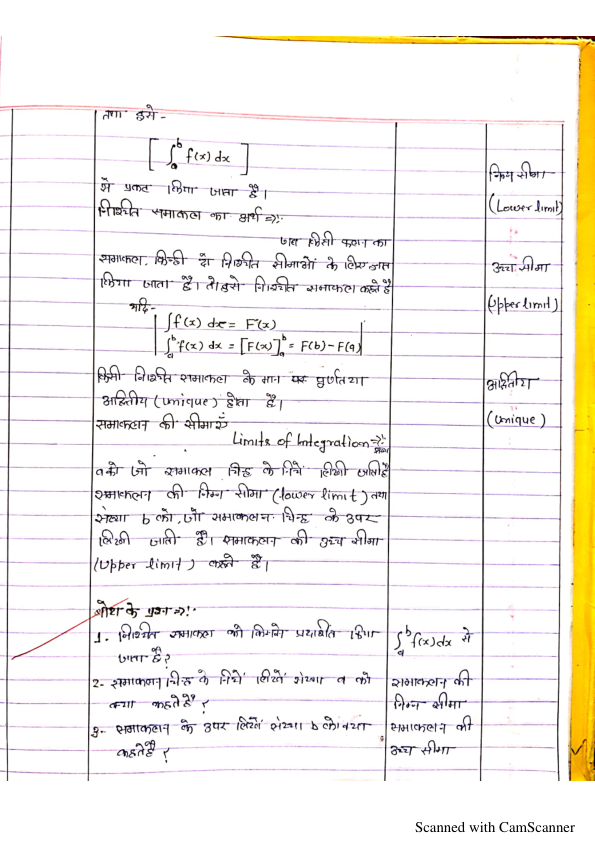 तथा इसे -
[ ∫ₐᵇ f(x) dx ]
से प्रकट किया जाता है।
निश्चित समाकल का अर्थ ⇒:-
जब किसी फलन का
समाकल, किन्ही दो निश्चित सीमाओं के लिए ज्ञात
किया जाता है। तो इसे निश्चित समाकल कहते है
यदि-
∫f(x) dx = F(x)
∫ₐᵇ f(x) dx = [F(x)]ₐᵇ = F(b) - F(a)
किसी निश्चित समाकल के मान पूर्णतया
अद्वितीय (unique) होता है।
समाकलन की सीमाएँ
Limits of Integration ⇒:-
संख्या
a को जो समाकल चिन्ह के निचे लिखी जाती है
समाकलन की निम्न सीमा (lower limit) तथा
संख्या b को, जो समाकलन चिन्ह के उपर
लिखी जाती है। समाकलन की उच्च सीमा
(Upper limit) कहते है।
बोध के प्रश्न ⇒:-
1. निश्चित समाकल को किससे प्रदर्शित किया
जाता है?
2- समाकलन चिन्ह के निचे लिखें संख्या a को
क्या कहते है?
3- समाकलन के उपर लिखें संख्या b को क्या
कहते है?
∫ₐᵇ f(x) dx से
समाकलन की
निम्न सीमा
समाकलन की
उच्च सीमा
सीमा
(Lower limit)
उच्च सीमा
(Upper limit)
अद्वितीय
(Unique)
Scanned with CamScanner